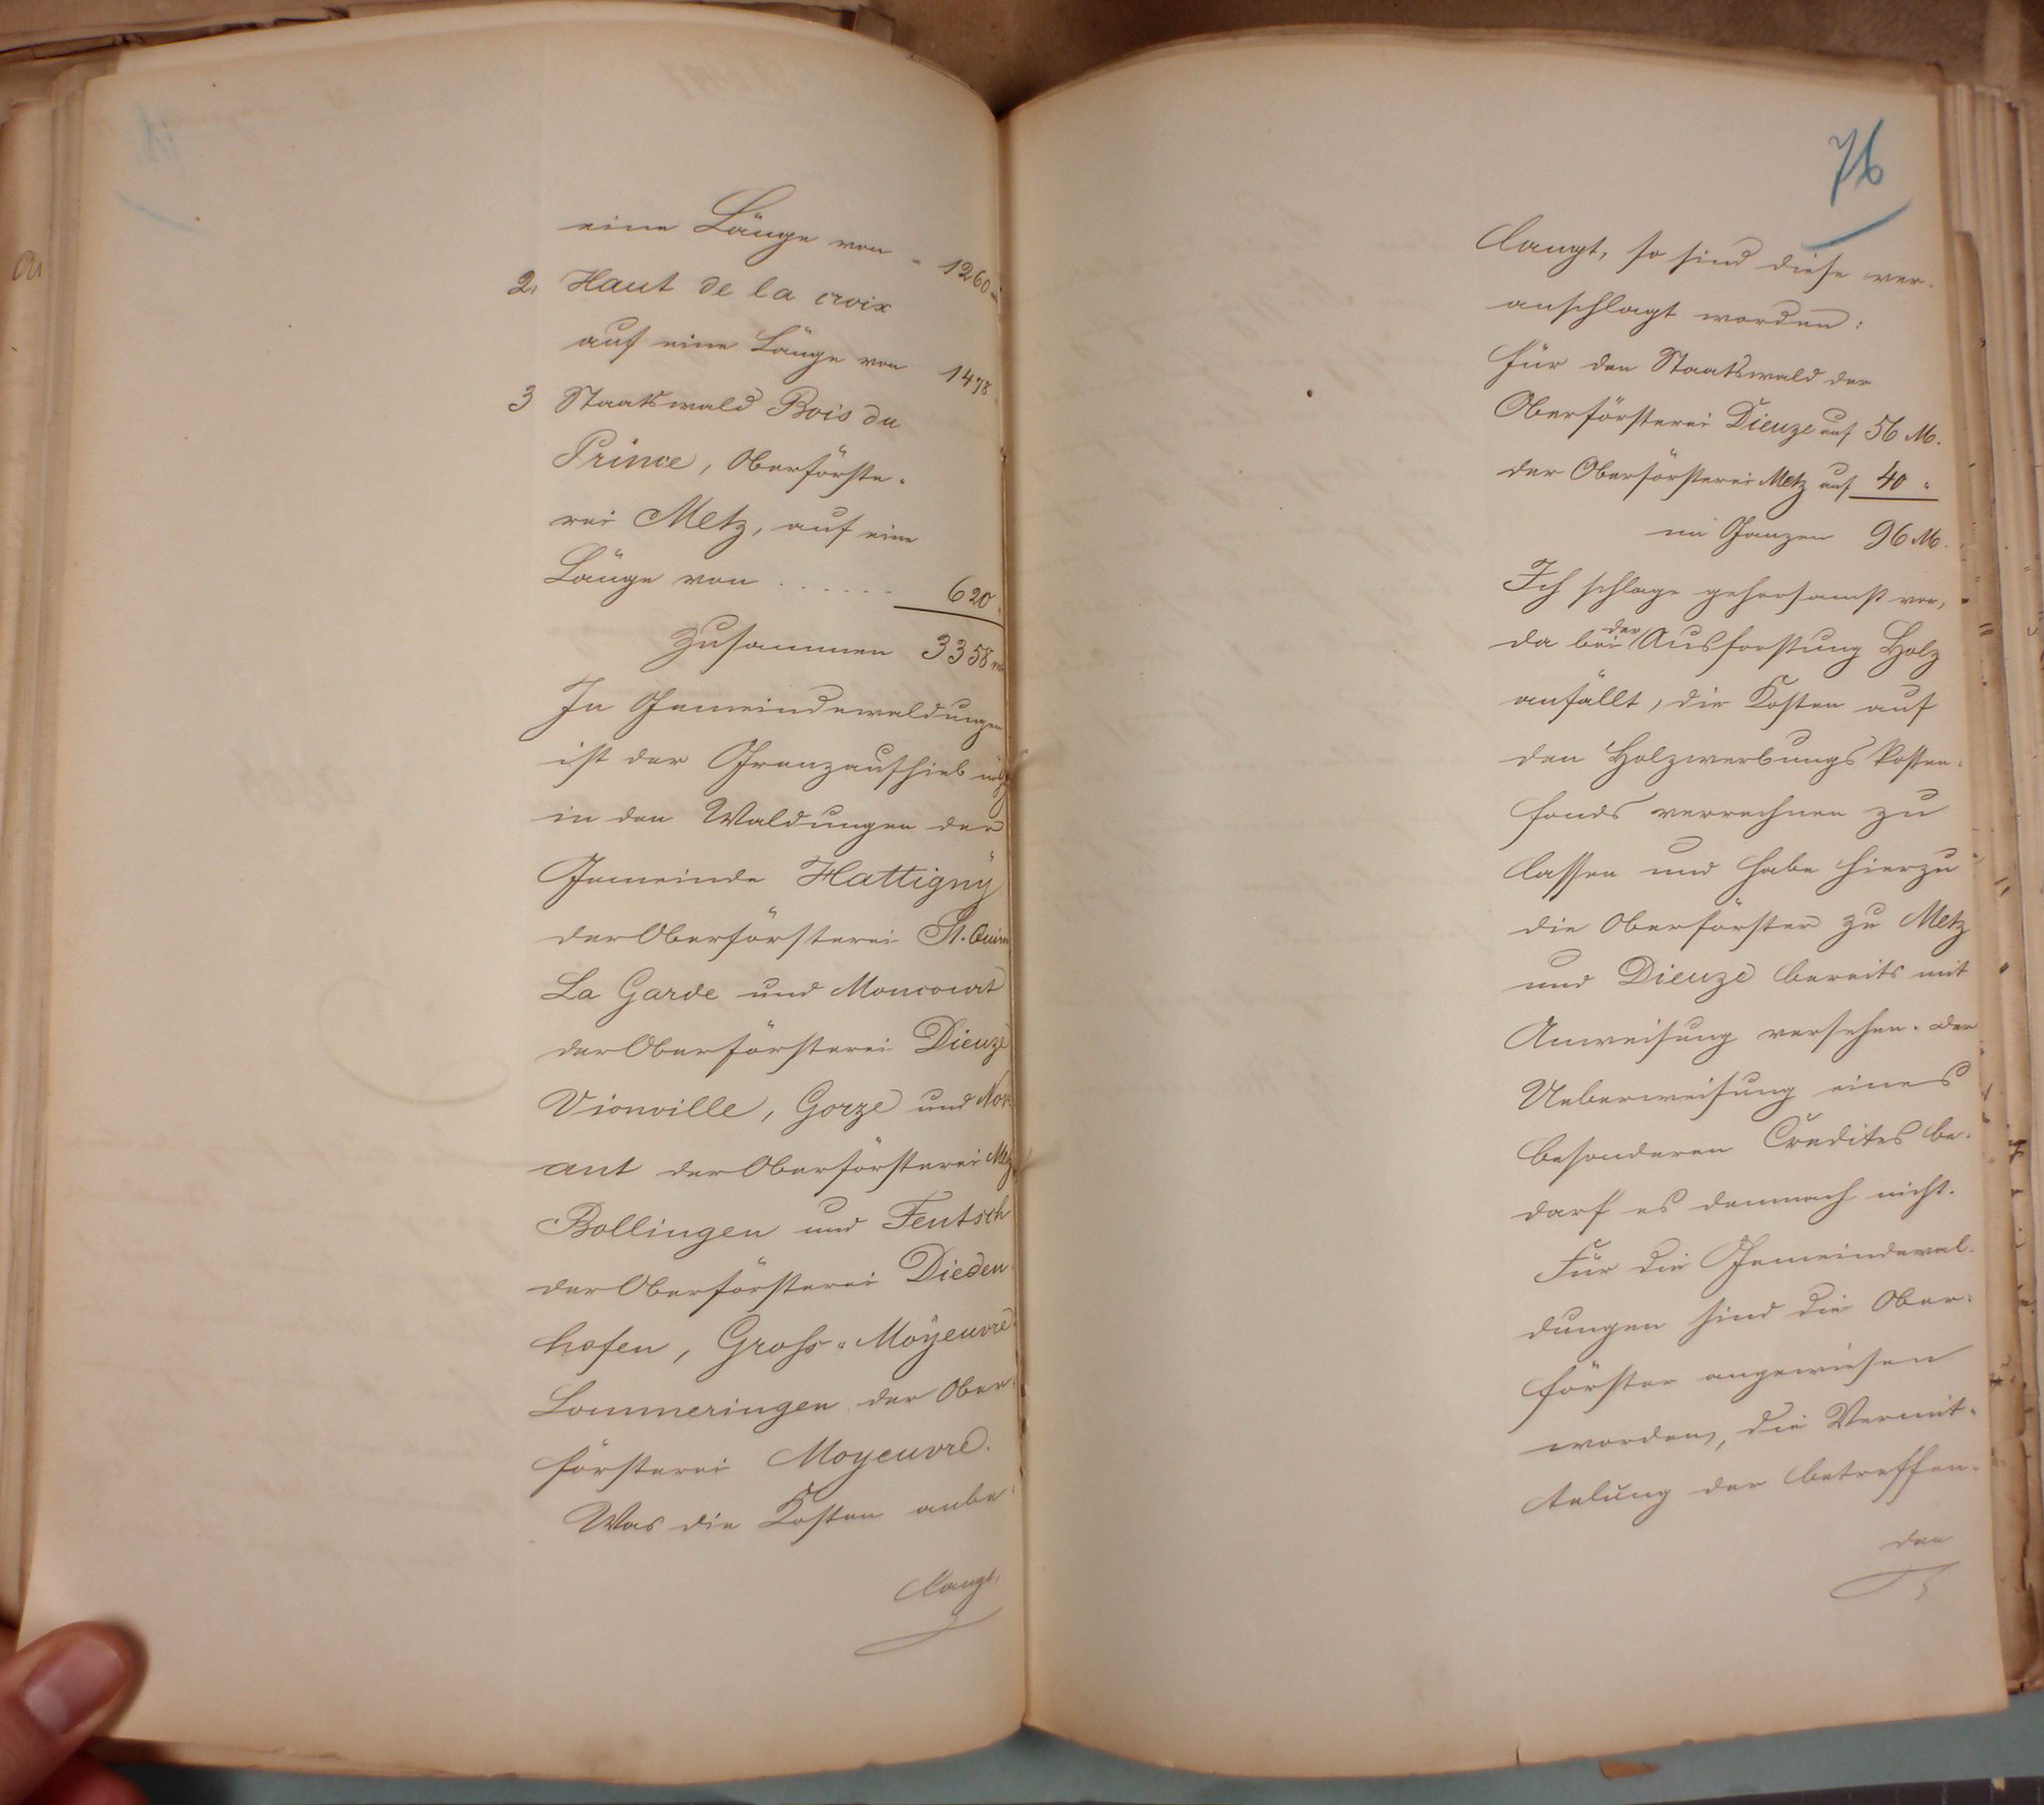 eine Länge von - 1260 m
2. Haut de la croix
auf eine Länge von 1478
3 Staatswald Bois du
Prince, Oberförste-
rei Metz, auf eine
Länge von ...... 620
Zusammen 3358 m
In Gemeindewaldungen
ist der Grenzaufhieb
in den Waldungen der
Gemeinde Hattigny
der Oberförsterei St. Quirin
La Garde und Moncourt
der Oberförsterei Dieuze
Vionville, Gorze und Nov
ant der Oberförsterei Metz
Bollingen und Fentsch
der Oberförsterei Dieden
hofen, Gross-Moyeuvre
Lommeringen der Ober-
försterei Moyeuvre.
Was die Kosten anbe-
langt,
76
langt, so sind diese ver-
anschlagt worden:
für den Staatswald der
Oberförsterei Dieuze auf 56 M.
der Oberförsterei Metz auf 40 "
im Ganzen 96 M.
Ich schlage gehorsamst vor,
da bei der Ausforstung Holz
anfällt, die Kosten auf
den Holzwerbungskosten-
fonds verrechnen zu
lassen und habe hierzu
die Oberförster zu Metz
und Dieuze bereits mit
Anweisung versehen. Der
Ueberweisung eines
besonderen Credites be-
darf es demnach nicht.
Für die Gemeindewal-
dungen sind die Ober-
förster angewiesen
worden, die Vermit-
telung der betreffen-
den